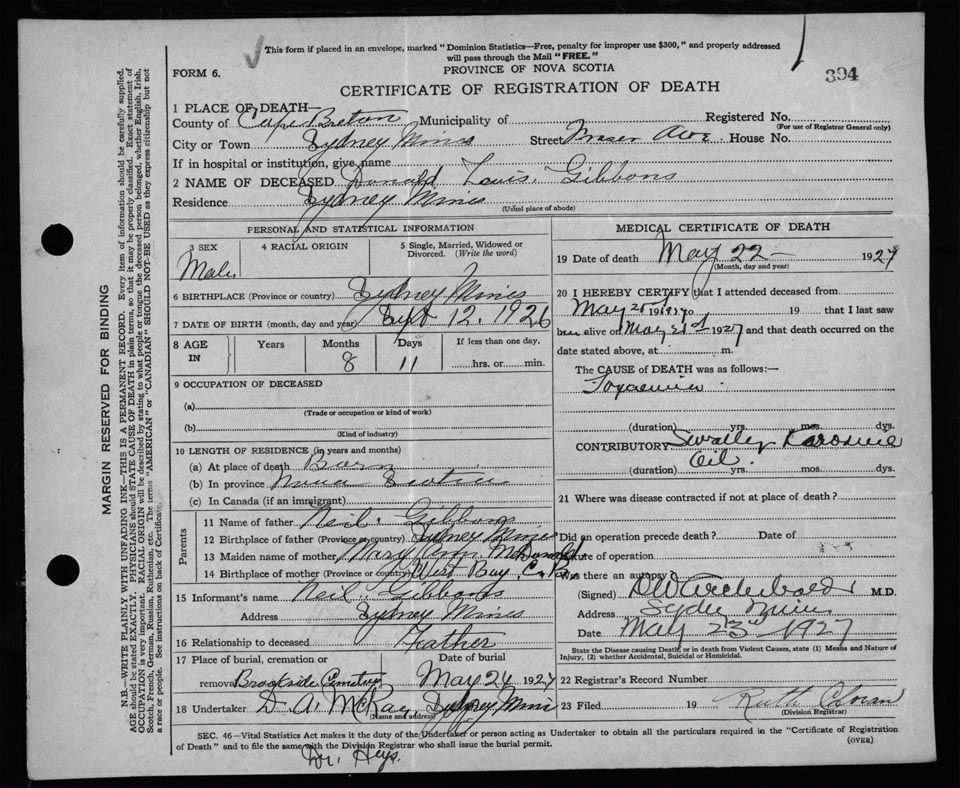 This form if placed in an envelope, marked "Dominion Statistics—Free, penalty for improper use $300," and properly addressed
will pass through the Mail "FREE."
FORM 6.
PROVINCE OF NOVA SCOTIA
394
CERTIFICATE OF REGISTRATION OF DEATH
1 PLACE OF DEATH—
County of Cape Breton Municipality of Registered No.
(For use of Registrar General only)
City or Town Sydney Mines Street Fraser Ave House No.
If in hospital or institution, give name
2 NAME OF DECEASED Donald Louis Gibbons
Residence Sydney Mines
(Usual place of abode)
PERSONAL AND STATISTICAL INFORMATION
3 SEX 4 RACIAL ORIGIN 5 Single, Married, Widowed or
Divorced. (Write the word)
Male
6 BIRTHPLACE (Province or country) Sydney Mines
7 DATE OF BIRTH (month, day and year) Sept 12, 1926
8 AGE IN Years Months Days If less than one day,
8 11 hrs. or min.
9 OCCUPATION OF DECEASED
(a)
(Trade or occupation or kind of work)
(b)
(Kind of industry)
10 LENGTH OF RESIDENCE (in years and months)
(a) At place of death Born
(b) In province Nova Scotia
(c) In Canada (if an immigrant)
Parents
11 Name of father Neil Gibbons
12 Birthplace of father (Province or country) Sydney Mines
13 Maiden name of mother Mary Ann McDonald
14 Birthplace of mother (Province or country) West Bay, C.B.
15 Informant's name Neil Gibbons
Address Sydney Mines
16 Relationship to deceased Father
17 Place of burial, cremation or Date of burial
removal Brookside Cemetery May 24 1927
18 Undertaker D. A. McKay, Sydney Mines
(Name and address)
MEDICAL CERTIFICATE OF DEATH
19 Date of death May 22 1927
(Month, day and year)
20 I HEREBY CERTIFY that I attended deceased from
May 1927 to 19 that I last saw
alive on May 21st 1927 and that death occurred on the
date stated above, at m.
The CAUSE of DEATH was as follows:—
Toxaemia
(duration) yrs. mos. dys.
CONTRIBUTORY Karosine
Oil.
(duration) yrs. mos. dys.
21 Where was disease contracted if not at place of death?
Did an operation precede death? Date of
Nature of operation
Was there an autopsy
(Signed) Archibald M.D.
Address Sydney Mines
Date May 23rd 1927
State the Disease causing Death, or in death from Violent Causes, state (1) Means and Nature of
Injury, (2) whether Accidental, Suicidal or Homicidal.
22 Registrar's Record Number
23 Filed 19 Ruth
(Division Registrar)
SEC. 46—Vital Statistics Act makes it the duty of the Undertaker or person acting as Undertaker to obtain all the particulars required in the "Certificate of Registration
of Death" and to file the same with the Division Registrar who shall issue the burial permit.
(OVER)
Dr. Heys.
MARGIN RESERVED FOR BINDING
N.B.—WRITE PLAINLY WITH UNFADING INK—THIS IS A PERMANENT RECORD. Every item of information should be carefully supplied.
AGE should be stated EXACTLY. PHYSICIANS should STATE CAUSE OF DEATH in plain terms, so that it may be properly classified. Exact statement of
OCCUPATION is very important. RACIAL ORIGIN will be described by stating to what people or tongue the deceased person belonged, whether English, Irish,
Scotch, French, German, Russian, Ruthenian, etc. The terms "AMERICAN" or "CANADIAN" SHOULD NOT BE USED as they express citizenship but not
a race or people. See instructions on back of Certificate.